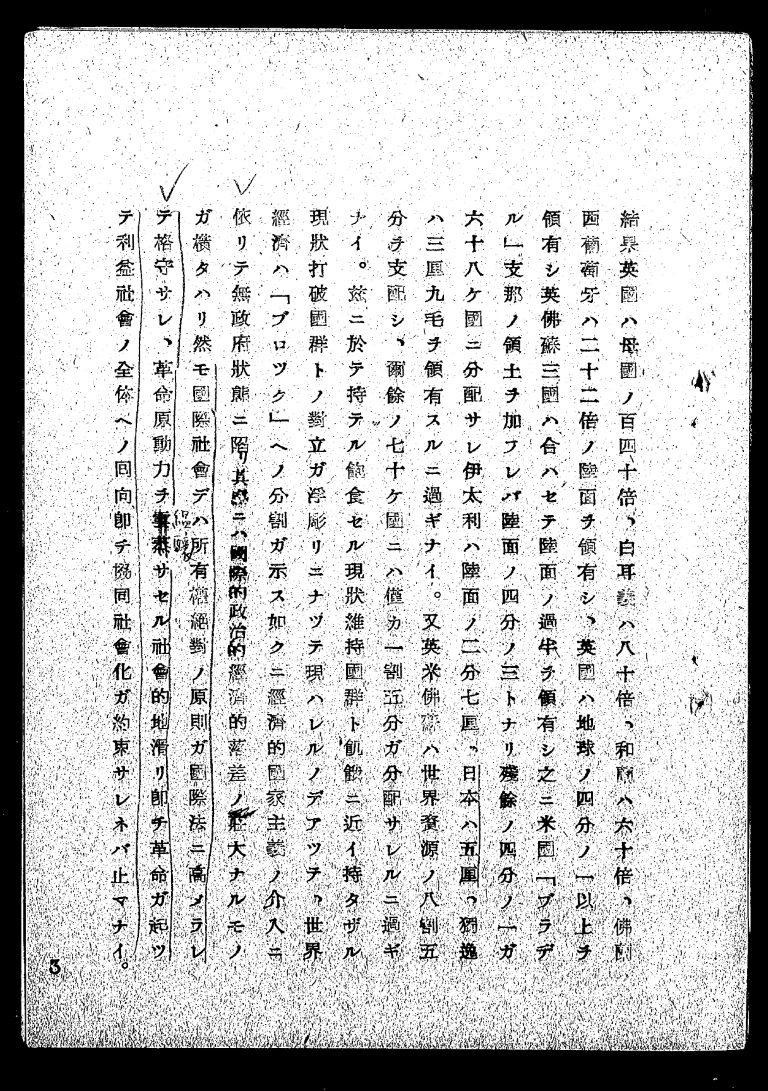 結果英國ハ母國ノ百四十倍、白耳義ハ八十倍、和蘭ハ六十倍、佛國
西葡萄牙ハ二十二倍ノ陸面ヲ領有シ、英國ハ地球ノ四分ノ一以上ヲ
領有シ英佛蘇三國ハ合ハセテ陸面ノ過半ヲ領有シ之ニ米國「ブラデ
ル」支那ノ領土ヲ加フレバ陸面ノ四分ノ三トナリ殘餘ノ四分ノ一ガ
六十八ケ國ニ分配サレ伊太利ハ陸面ノ二分七厘、日本ハ五厘、獨逸
ハ三厘九毛ヲ領有スルニ過ギナイ。又英米佛蘇ハ世界資源ノ八割五
分ヲ支配シ、爾餘ノ七十ケ國ニハ僅カ一割五分ガ分配サレルニ過ギ
ナイ。玆ニ於テ持テル飽食セル現狀維持國群ト飢餓ニ近イ持タザル
現狀打破國群トノ對立ガ浮彫リニナツテ現ハレルノデアツテ、世界
經濟ハ「ブロツク」ヘノ分割ガ示ス如クニ經濟的國家主義ノ介入ニ
依リテ無政府狀態ニ陷リ其處ニハ國際的政治的經濟的落差ノ莊大ナルモノ
ガ橫タハリ然モ國際社會デハ所有權絕對ノ原則ガ國際法ニ高メラレ
テ格守サレ、革命原動力ヲ サセル社會的地滑リ卽チ革命ガ起ツ
テ利益社會ノ全體ヘノ回向卽チ協同社會化ガ約束サレネバ止マナイ。
3